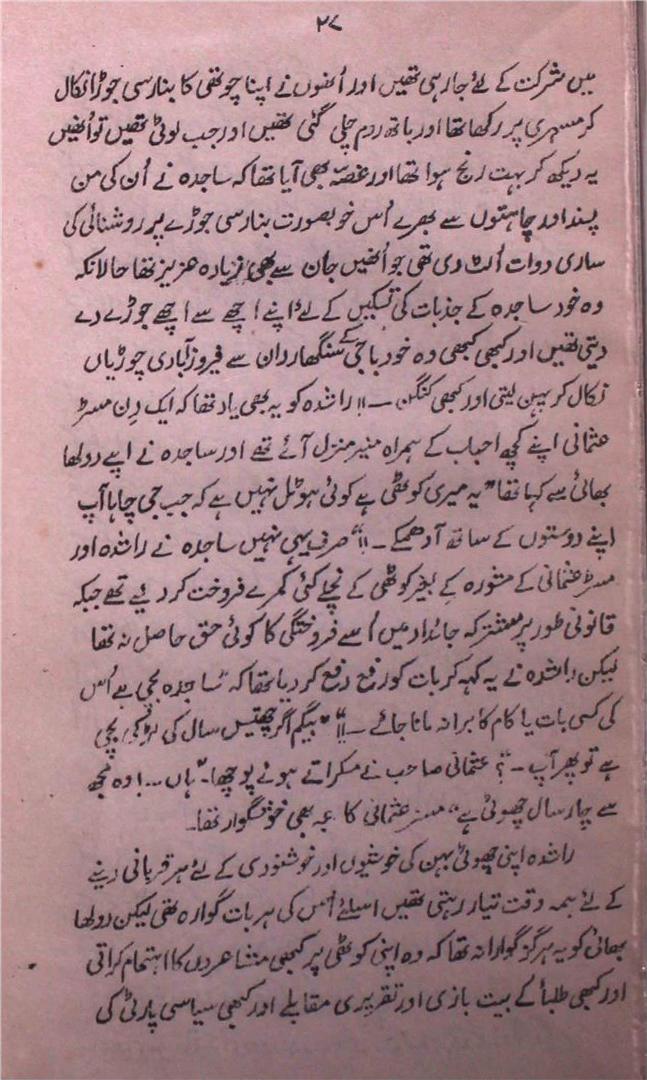 ۲۷
میں شرکت کے لئے جارہی تھیں اور اُنھوں نے اپنا چوتھی کا بنارسی جوڑا نکال
کر مسہری پر رکھا تھا اور باتھ روم چلی گئی تھیں اور جب لوٹی تھیں تو اُنھیں
یہ دیکھ کر بہت رنج ہوا تھا اور غصّہ بھی آیا تھا کہ ساجدہ نے اُن کی من
پسند اور چاہتوں سے بھرے اُس خوبصورت بنارسی جوڑے پر روشنائی کی
ساری دوات اُلٹ دی تھی جو اُنھیں جان سے بھی زیادہ عزیز تھا حالانکہ
وہ خود ساجدہ کے جذبات کی تسکین کے لئے اپنے اچھے سے اچھے جوڑے دے
دیتی تھیں اور کبھی کبھی وہ خود باجی کے سنگھاردان سے فیروزآبادی چوڑیاں
نکال کر پہن لیتی اور کبھی کنگن ـــ !! راشدہ کو یہ بھی یاد تھا کہ ایک دن مسٹر
عثمانی اپنے کچھ احباب کے ہمراہ منیر منزل آئے تھے اور ساجدہ نے اپنے دولھا
بھائی سے کہا تھا " یہ میری کوٹھی ہے کوئی ہوٹل نہیں ہے کہ جب جی چاہا آپ
اپنے دوستوں کے ساتھ آدھمکے ـــ !!" صرف یہی نہیں ساجدہ نے راشدہ اور
مسٹر عثمانی کے مشورہ کے بغیر کوٹھی کے نچلے کئی کمرے فروخت کردیئے تھے جبکہ
قانونی طور پر مشترکہ جائداد میں اُسے فروختگی کا کوئی حق حاصل نہ تھا
لیکن راشدہ نے یہ کہہ کر بات کو رفع دفع کر دیا تھا کہ " ساجدہ بچی ہے اُس
کی کسی بات یا کام کا برا نہ مانا جائے ـــ !!" " بیگم اگر چھتیس سال کی لڑکی بچی
ہے تو پھر آپ ـــ ؟ عثمانی صاحب نے مسکراتے ہوئے پوچھا۔ "ہاں ...! وہ مجھ
سے چار سال چھوٹی ہے" مسز عثمانی کا بھی خوشگوار تھا۔
راشدہ اپنی چھوٹی بہن کی خوشیوں اور خوشنودی کے لئے ہر قربانی دینے
کے لئے ہمہ وقت تیار رہتی تھیں اسلئے اُس کی ہر بات گوارہ تھی لیکن دولھا
بھائی کو یہ ہرگز گوارا نہ تھا کہ وہ اپنی کوٹھی پر کبھی مشاعروں کا اہتمام کراتی
اور کبھی طلبأ کے بیت بازی اور تقریری مقابلے اور کبھی سیاسی پارٹی کی